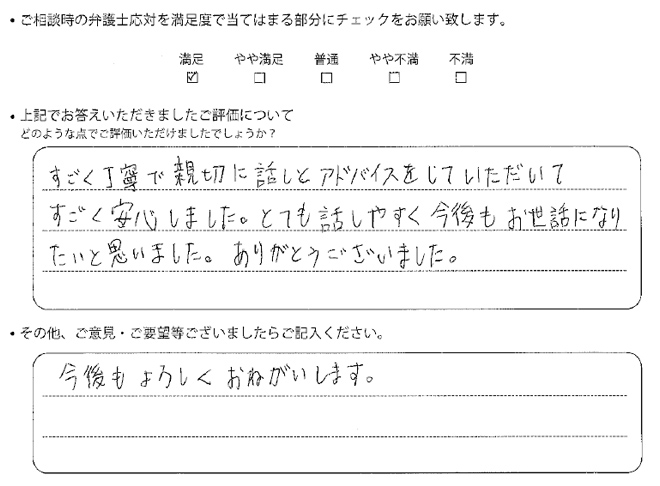 ・ご相談時の弁護士応対を満足度で当てはまる部分にチェックをお願い致します。
満足 やや満足 普通 やや不満 不満
☑ □ □ □ □
・上記でお答えいただきましたご評価について
どのような点でご評価いただけましたでしょうか？
すごく丁寧で親切に話しとアドバイスをじていただいて
すごく安心しました。とても話しやすく今後もお世話になり
たいと思いました。ありがとうございました。
・その他、ご意見・ご要望等ございましたらご記入ください。
今後もよろしくおねがいします。